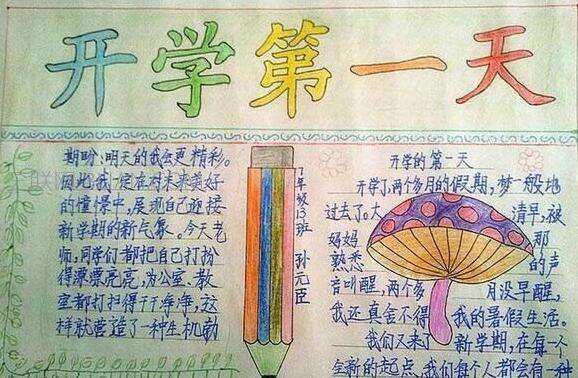 开学第一天
期盼,明天的我会更精彩。
因此我一定在对未来美好
的憧憬中,展现自己迎接
新学期的新气象。今天老
师,同学们都把自己打扮
得漂漂亮亮,为公室、教
室都打扫得干干净净,这
样就营造了一种生机勃
7年级13班 孙元臣
开学的第一天
开学了,两个多月的假期,梦一般地
过去了。大清早,被
妈妈那
熟悉的声
音叫醒,两个多月没早醒,
我还真舍不得我的暑假生活。
我们又来了新学期,在每一个
全新的起点,我们每个人都会有一种